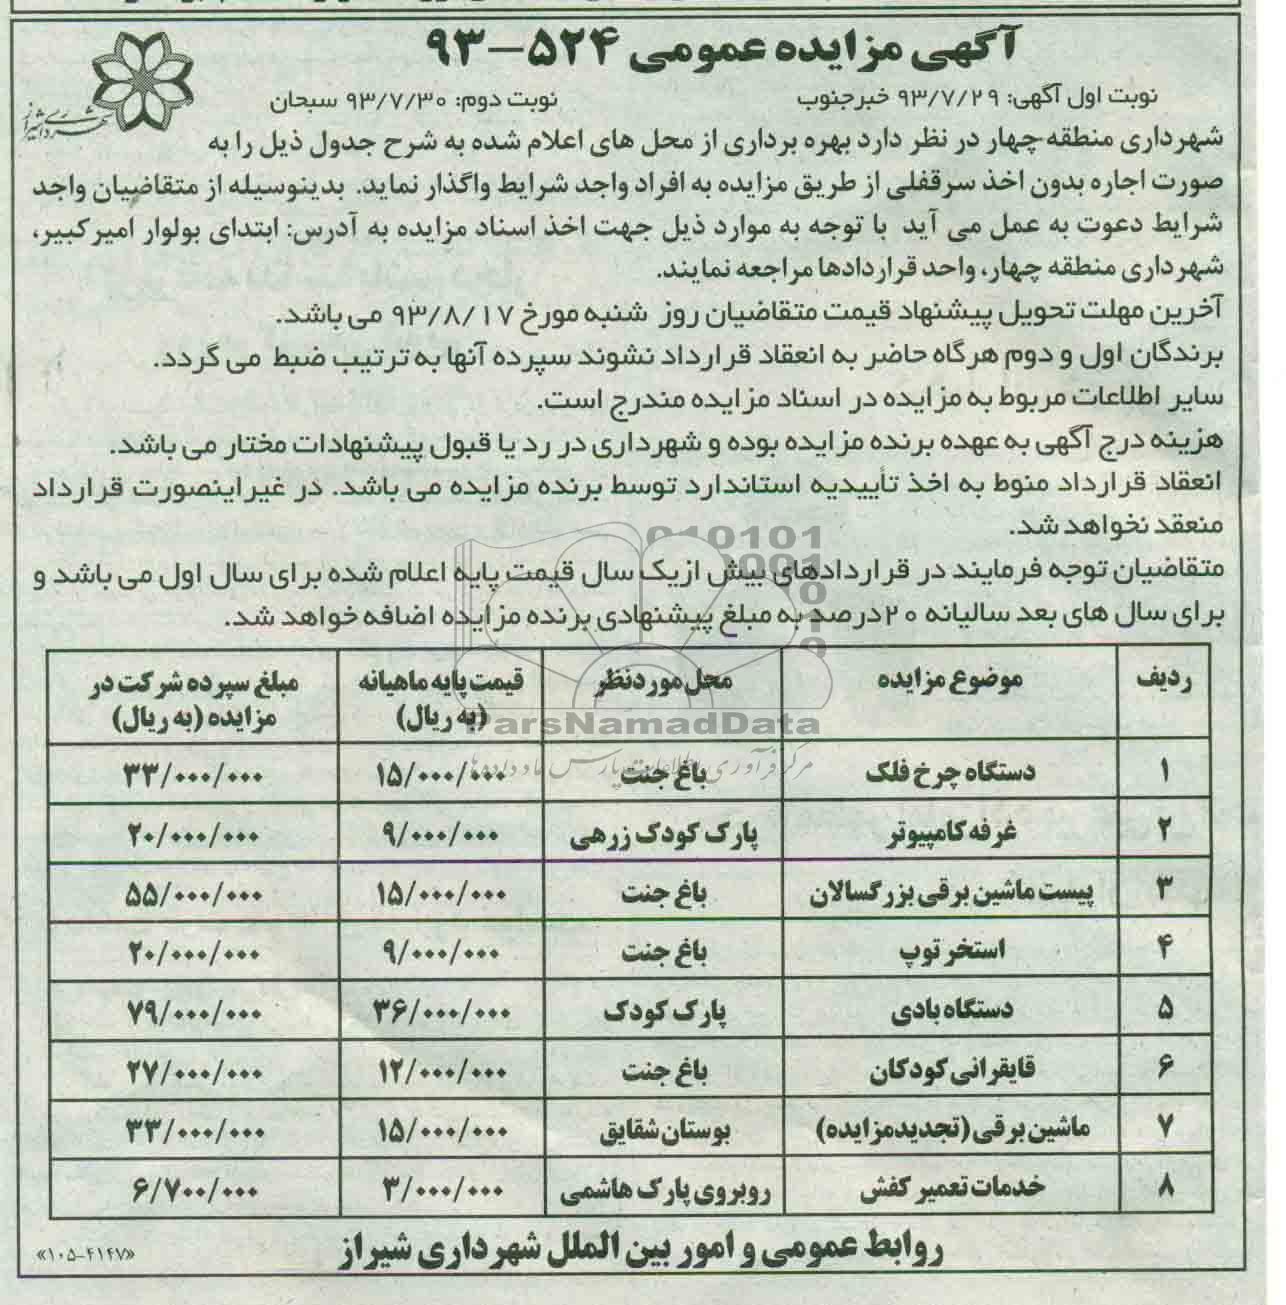 آگهی مزایده عمومی ۵۲۴-۹۳
نوبت اول آگهی: ۹۳/۷/۲۹ خبرجنوب
نوبت دوم: ۹۳/۷/۳۰ سبحان
شهرداری شیراز
شهرداری منطقه چهار در نظر دارد بهره برداری از محل های اعلام شده به شرح جدول ذیل را به
صورت اجاره بدون اخذ سرقفلی از طریق مزایده به افراد واجد شرایط واگذار نماید. بدینوسیله از متقاضیان واجد
شرایط دعوت به عمل می آید با توجه به موارد ذیل جهت اخذ اسناد مزایده به آدرس: ابتدای بولوار امیرکبیر،
شهرداری منطقه چهار، واحد قراردادها مراجعه نمایند.
آخرین مهلت تحویل پیشنهاد قیمت متقاضیان روز شنبه مورخ ۹۳/۸/۱۷ می باشد.
برندگان اول و دوم هرگاه حاضر به انعقاد قرارداد نشوند سپرده آنها به ترتیب ضبط می گردد.
سایر اطلاعات مربوط به مزایده در اسناد مزایده مندرج است.
هزینه درج آگهی به عهده برنده مزایده بوده و شهرداری در رد یا قبول پیشنهادات مختار می باشد.
انعقاد قرارداد منوط به اخذ تأییدیه استاندارد توسط برنده مزایده می باشد. در غیراینصورت قرارداد
منعقد نخواهد شد.
متقاضیان توجه فرمایند در قراردادهای بیش از یک سال قیمت پایه اعلام شده برای سال اول می باشد و
برای سال های بعد سالیانه ۲۰درصد به مبلغ پیشنهادی برنده مزایده اضافه خواهد شد.
ردیف موضوع مزایده محل موردنظر قیمت پایه ماهیانه (به ریال) مبلغ سپرده شرکت در مزایده (به ریال)
۱ دستگاه چرخ فلک باغ جنت ۱۵/۰۰۰/۰۰۰ ۳۳/۰۰۰/۰۰۰
۲ غرفه کامپیوتر پارک کودک زرهی ۹/۰۰۰/۰۰۰ ۲۰/۰۰۰/۰۰۰
۳ پیست ماشین برقی بزرگسالان باغ جنت ۱۵/۰۰۰/۰۰۰ ۵۵/۰۰۰/۰۰۰
۴ استخر توپ باغ جنت ۹/۰۰۰/۰۰۰ ۲۰/۰۰۰/۰۰۰
۵ دستگاه بادی پارک کودک ۳۶/۰۰۰/۰۰۰ ۷۹/۰۰۰/۰۰۰
۶ قایقرانی کودکان باغ جنت ۱۲/۰۰۰/۰۰۰ ۲۷/۰۰۰/۰۰۰
۷ ماشین برقی (تجدیدمزایده) بوستان شقایق ۱۵/۰۰۰/۰۰۰ ۳۳/۰۰۰/۰۰۰
۸ خدمات تعمیر کفش روبروی پارک هاشمی ۳/۰۰۰/۰۰۰ ۶/۷۰۰/۰۰۰
روابط عمومی و امور بین الملل شهرداری شیراز
«۱۰۵-۴۱۴۷»
ParsNamadData